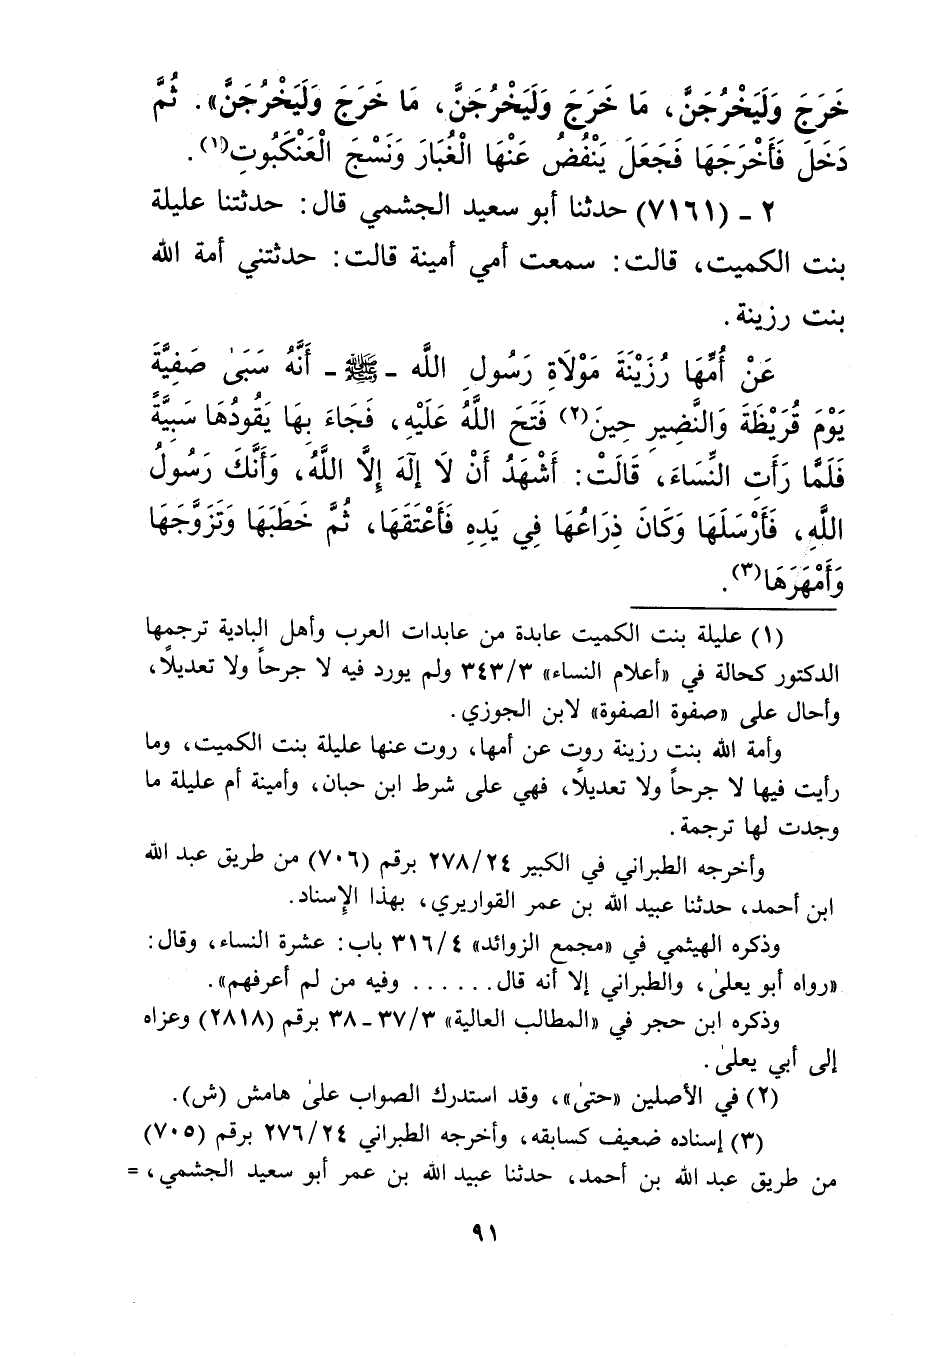 خَرَجَ وَلَيَخْرُجَنَّ، مَا خَرَجَ وَلَيَخْرُجَنَّ، مَا خَرَجَ وَلَيَخْرُجَنَّ». ثُمَّ
دَخَلَ فَأَخْرَجَهَا فَجَعَلَ يَنْفُضُ عَنْهَا الْغُبَارَ وَنَسْجَ الْعَنْكَبُوتِ(١).
٢ ـ (٧١٦١) حدثنا أبو سعيد الجشمي قال: حدثتنا عليلة
بنت الكميت، قالت: سمعت أمي أمينة قالت: حدثتني أمة الله
بنت رزينة.
عَنْ أُمِّهَا رُزَيْنَةَ مَوْلَاةِ رَسُولِ اللَّه ـ ﷺ ـ أَنَّهُ سَبَىٰ صَفِيَّةَ
يَوْمَ قُرَيْظَةَ وَالنَّضِيرِ حِينَ(٢) فَتَحَ اللَّهُ عَلَيْهِ، فَجَاءَ بِهَا يَقُودُهَا سَبِيَّةً
فَلَمَّا رَأَتِ النِّسَاءَ، قَالَتْ: أَشْهَدُ أَنْ لَا إلَهَ إلَّا اللَّهُ، وَأَنَّكَ رَسُولُ
اللَّهِ، فَأَرْسَلَهَا وَكَانَ ذِرَاعُهَا فِي يَدِهِ فَأَعْتَقَهَا، ثُمَّ خَطَبَهَا وَتَزَوَّجَهَا
وَأَمْهَرَهَا(٣).
(١) عليلة بنت الكميت عابدة من عابدات العرب وأهل البادية ترجمها
الدكتور كحالة في «أعلام النساء» ٣٤٣/٣ ولم يورد فيه لا جرحاً ولا تعديلاً،
وأحال على «صفوة الصفوة» لابن الجوزي.
وأمة الله بنت رزينة روت عن أمها، روت عنها عليلة بنت الكميت، وما
رأيت فيها لا جرحاً ولا تعديلاً، فهي على شرط ابن حبان، وأمينة أم عليلة ما
وجدت لها ترجمة.
وأخرجه الطبراني في الكبير ٢٧٨/٢٤ برقم (٧٠٦) من طريق عبد الله
ابن أحمد، حدثنا عبيد الله بن عمر القواريري، بهذا الإسناد.
وذكره الهيثمي في «مجمع الزوائد» ٣١٦/٤ باب: عشرة النساء، وقال:
«رواه أبو يعلىٰ، والطبراني إلا أنه قال...... وفيه من لم أعرفهم».
وذكره ابن حجر في «المطالب العالية» ٣٧/٣ـ٣٨ برقم (٢٨١٨) وعزاه
إلى أبي يعلىٰ.
(٢) في الأصلين «حتىٰ»، وقد استدرك الصواب علىٰ هامش (ش).
(٣) إسناده ضعيف كسابقه، وأخرجه الطبراني ٢٧٦/٢٤ برقم (٧٠٥)
من طريق عبد الله بن أحمد، حدثنا عبيد الله بن عمر أبو سعيد الجشمي، =
٩١